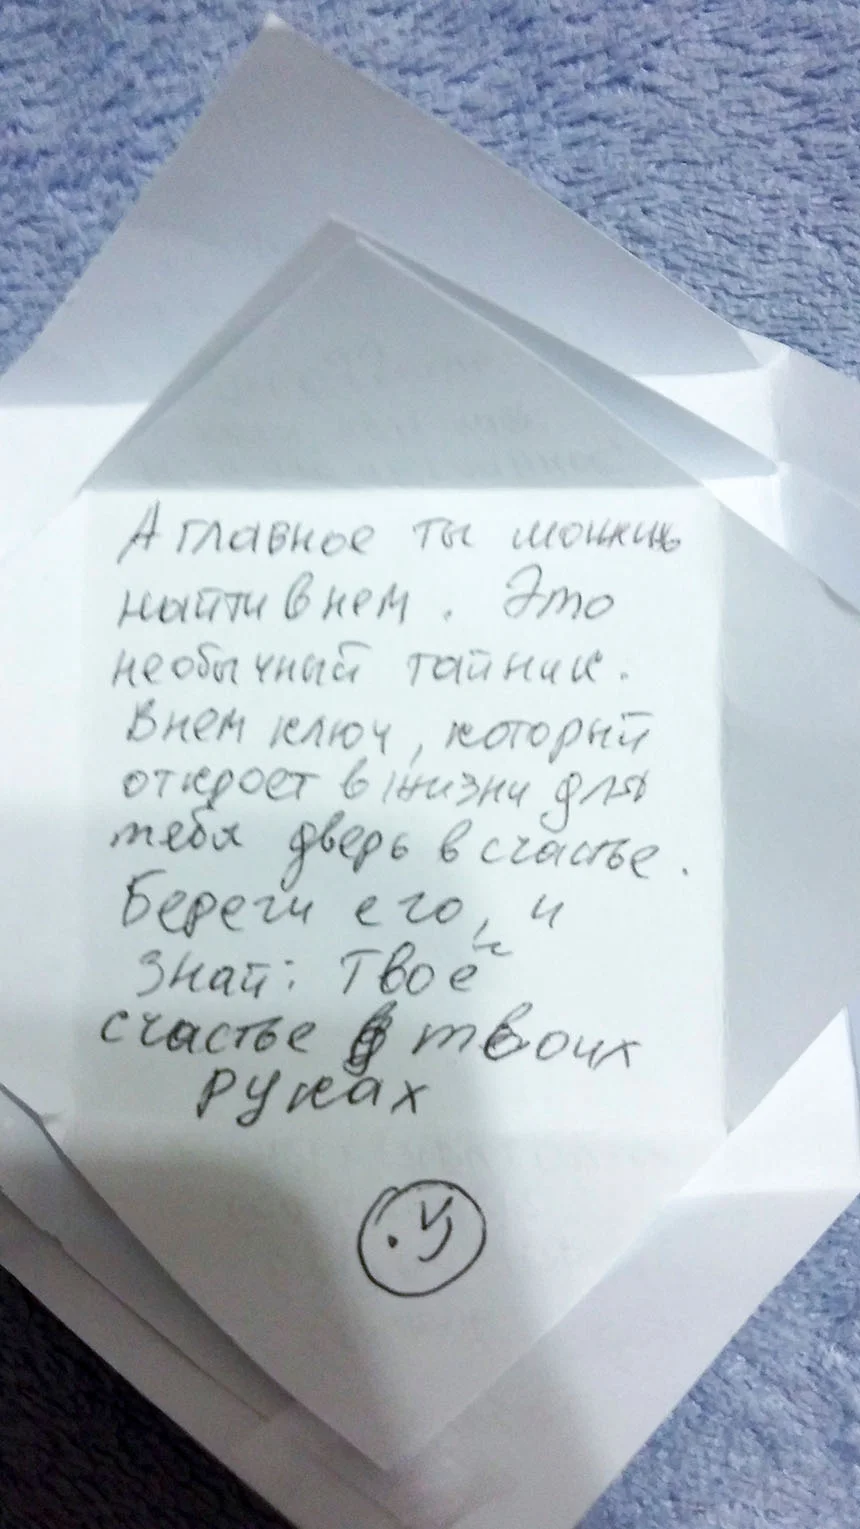 А главное ты можешь
найти в нем. Это
необычный тайник.
В нем ключ, который
откроет в жизни для
тебя дверь в счастье.
Береги его, и
знай: Твое
счастье в твоих
руках